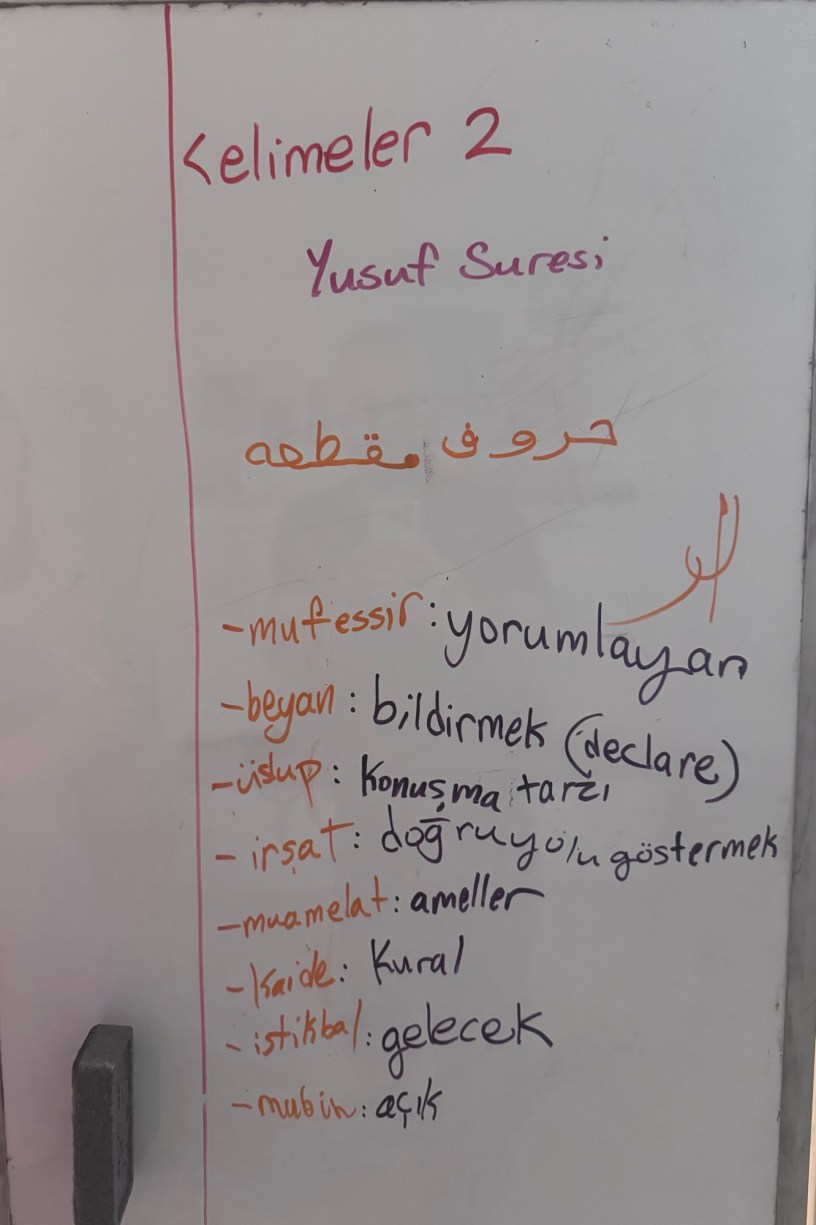 Kelimeler 2
Yusuf Suresi
حروف مقطعه
الر
-mufessir: yorumlayan
-beyan: bildirmek (declare)
-üslup: konuşma tarzı
-irşat: doğru yolu göstermek
-muamelat: ameller
-kaide: kural
-istikbal: gelecek
-mubin: açık